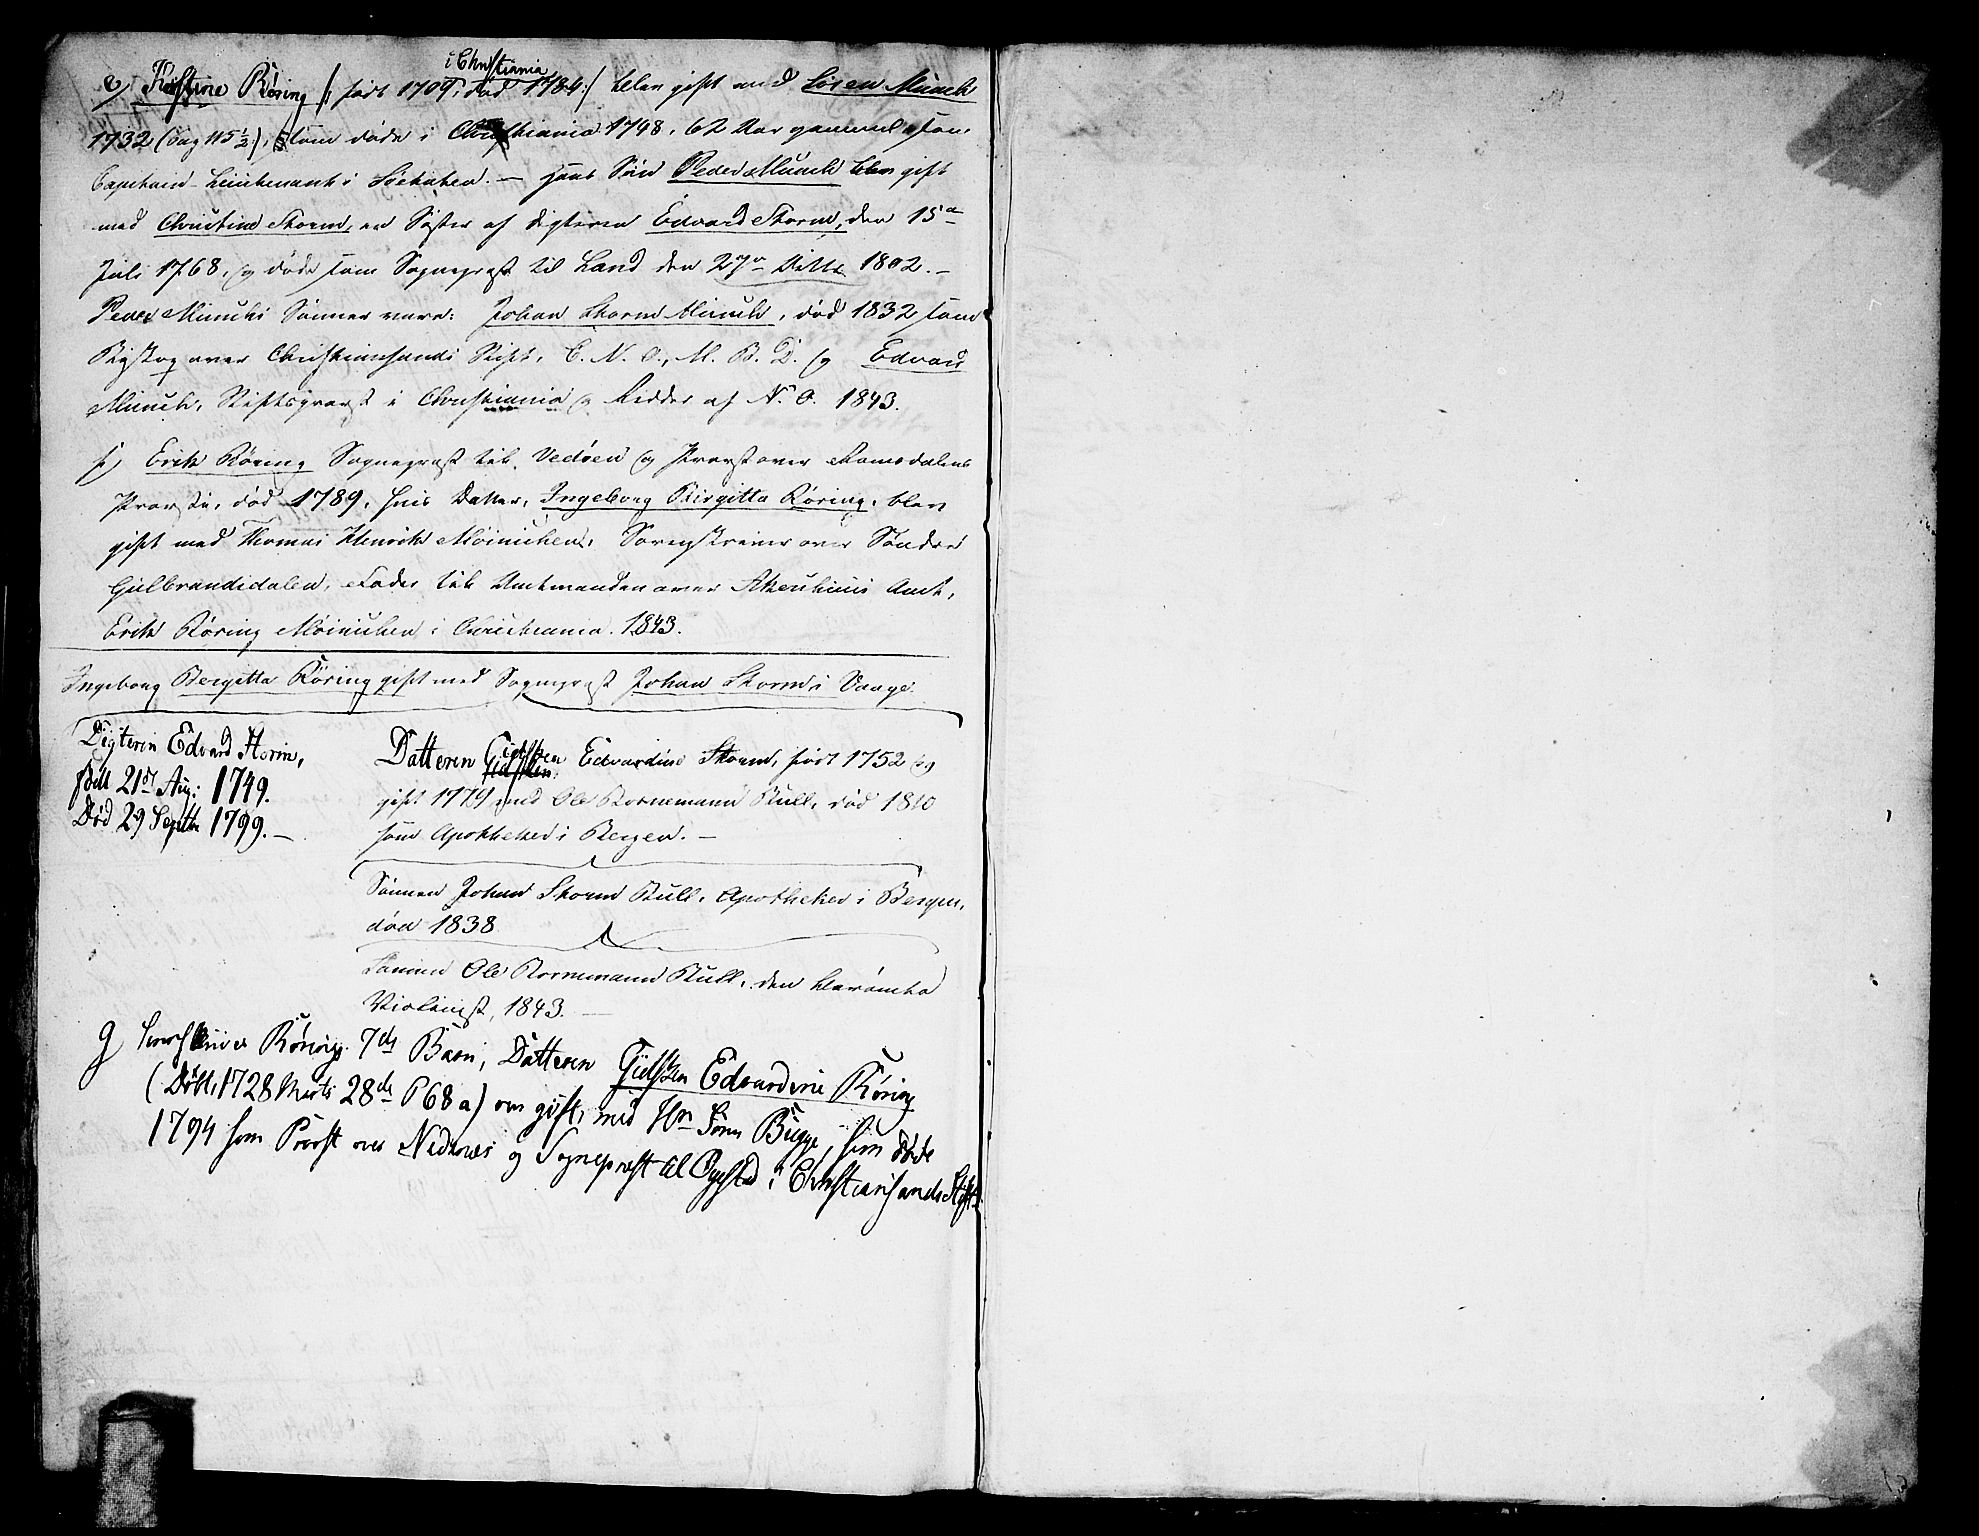 i Christiania
e) Kirstine Röring /: född 1709, död 1784 :/ blev gift med Sören Munch
1732 (pag 115½), som døde i Christiania 1748, 62 Aar gammel som
Capitain-Lieutenant i Søetaten. — Hans Søn Peder Munch blev gift
med Christine Storm, en Søster af Digteren Edvard Storm, den 15de
Juli 1768, og døde som Sognepræst til Land den 27de 1802. —
Peder Munchs Sønner vare: Johan Storm Munch, død 1832 som
Biskop over Christiansands Stift, C. N. O., M. B. D. og Edvard
Munch, Stiftsprovst i Christiania og Ridder af N. O. 1843.
f) Erik Röring Sognepræst til Vedöen og Provst over Romsdalens
Provsti, död 1789, hvis Datter, Ingeborg Birgitta Röring, blev
gift med Thomas Henrik Möinichen, Sorenskriver over Søndre
Gulbrandsdalen, Fader til Amtmanden over Akershuus Amt,
Erik Röring Möinichen i Christiania. 1843.
Ingeborg Bergitta Röring gift med Sognepræst Johan Storm i Vaage.
Digteren Edvard Storm,
Født 21de Aug: 1749.
Död 29 Septbr 1799. —
Datteren Gidsken Edvardine Storm, født 1752 og
gift 1779 med Ole Bornemann Bull, död 1810
som Apotheker i Bergen. —
Sønnen Johan Storm Bull, Apotheker i Bergen,
død 1838
Sønnen Ole Bornemann Bull, den berömte
Violinist, 1843. —
g Sorenskriver Rörings 7de Barn, Datteren Gidsken Edvardine Röring
(Døbt, 1728 Marts 28de P 68 a) var gift med Hr Sören Bugge, som døde
1794 som Provst over Nedenæs og Sognepræst til Øyestad i Christiansands Stift.